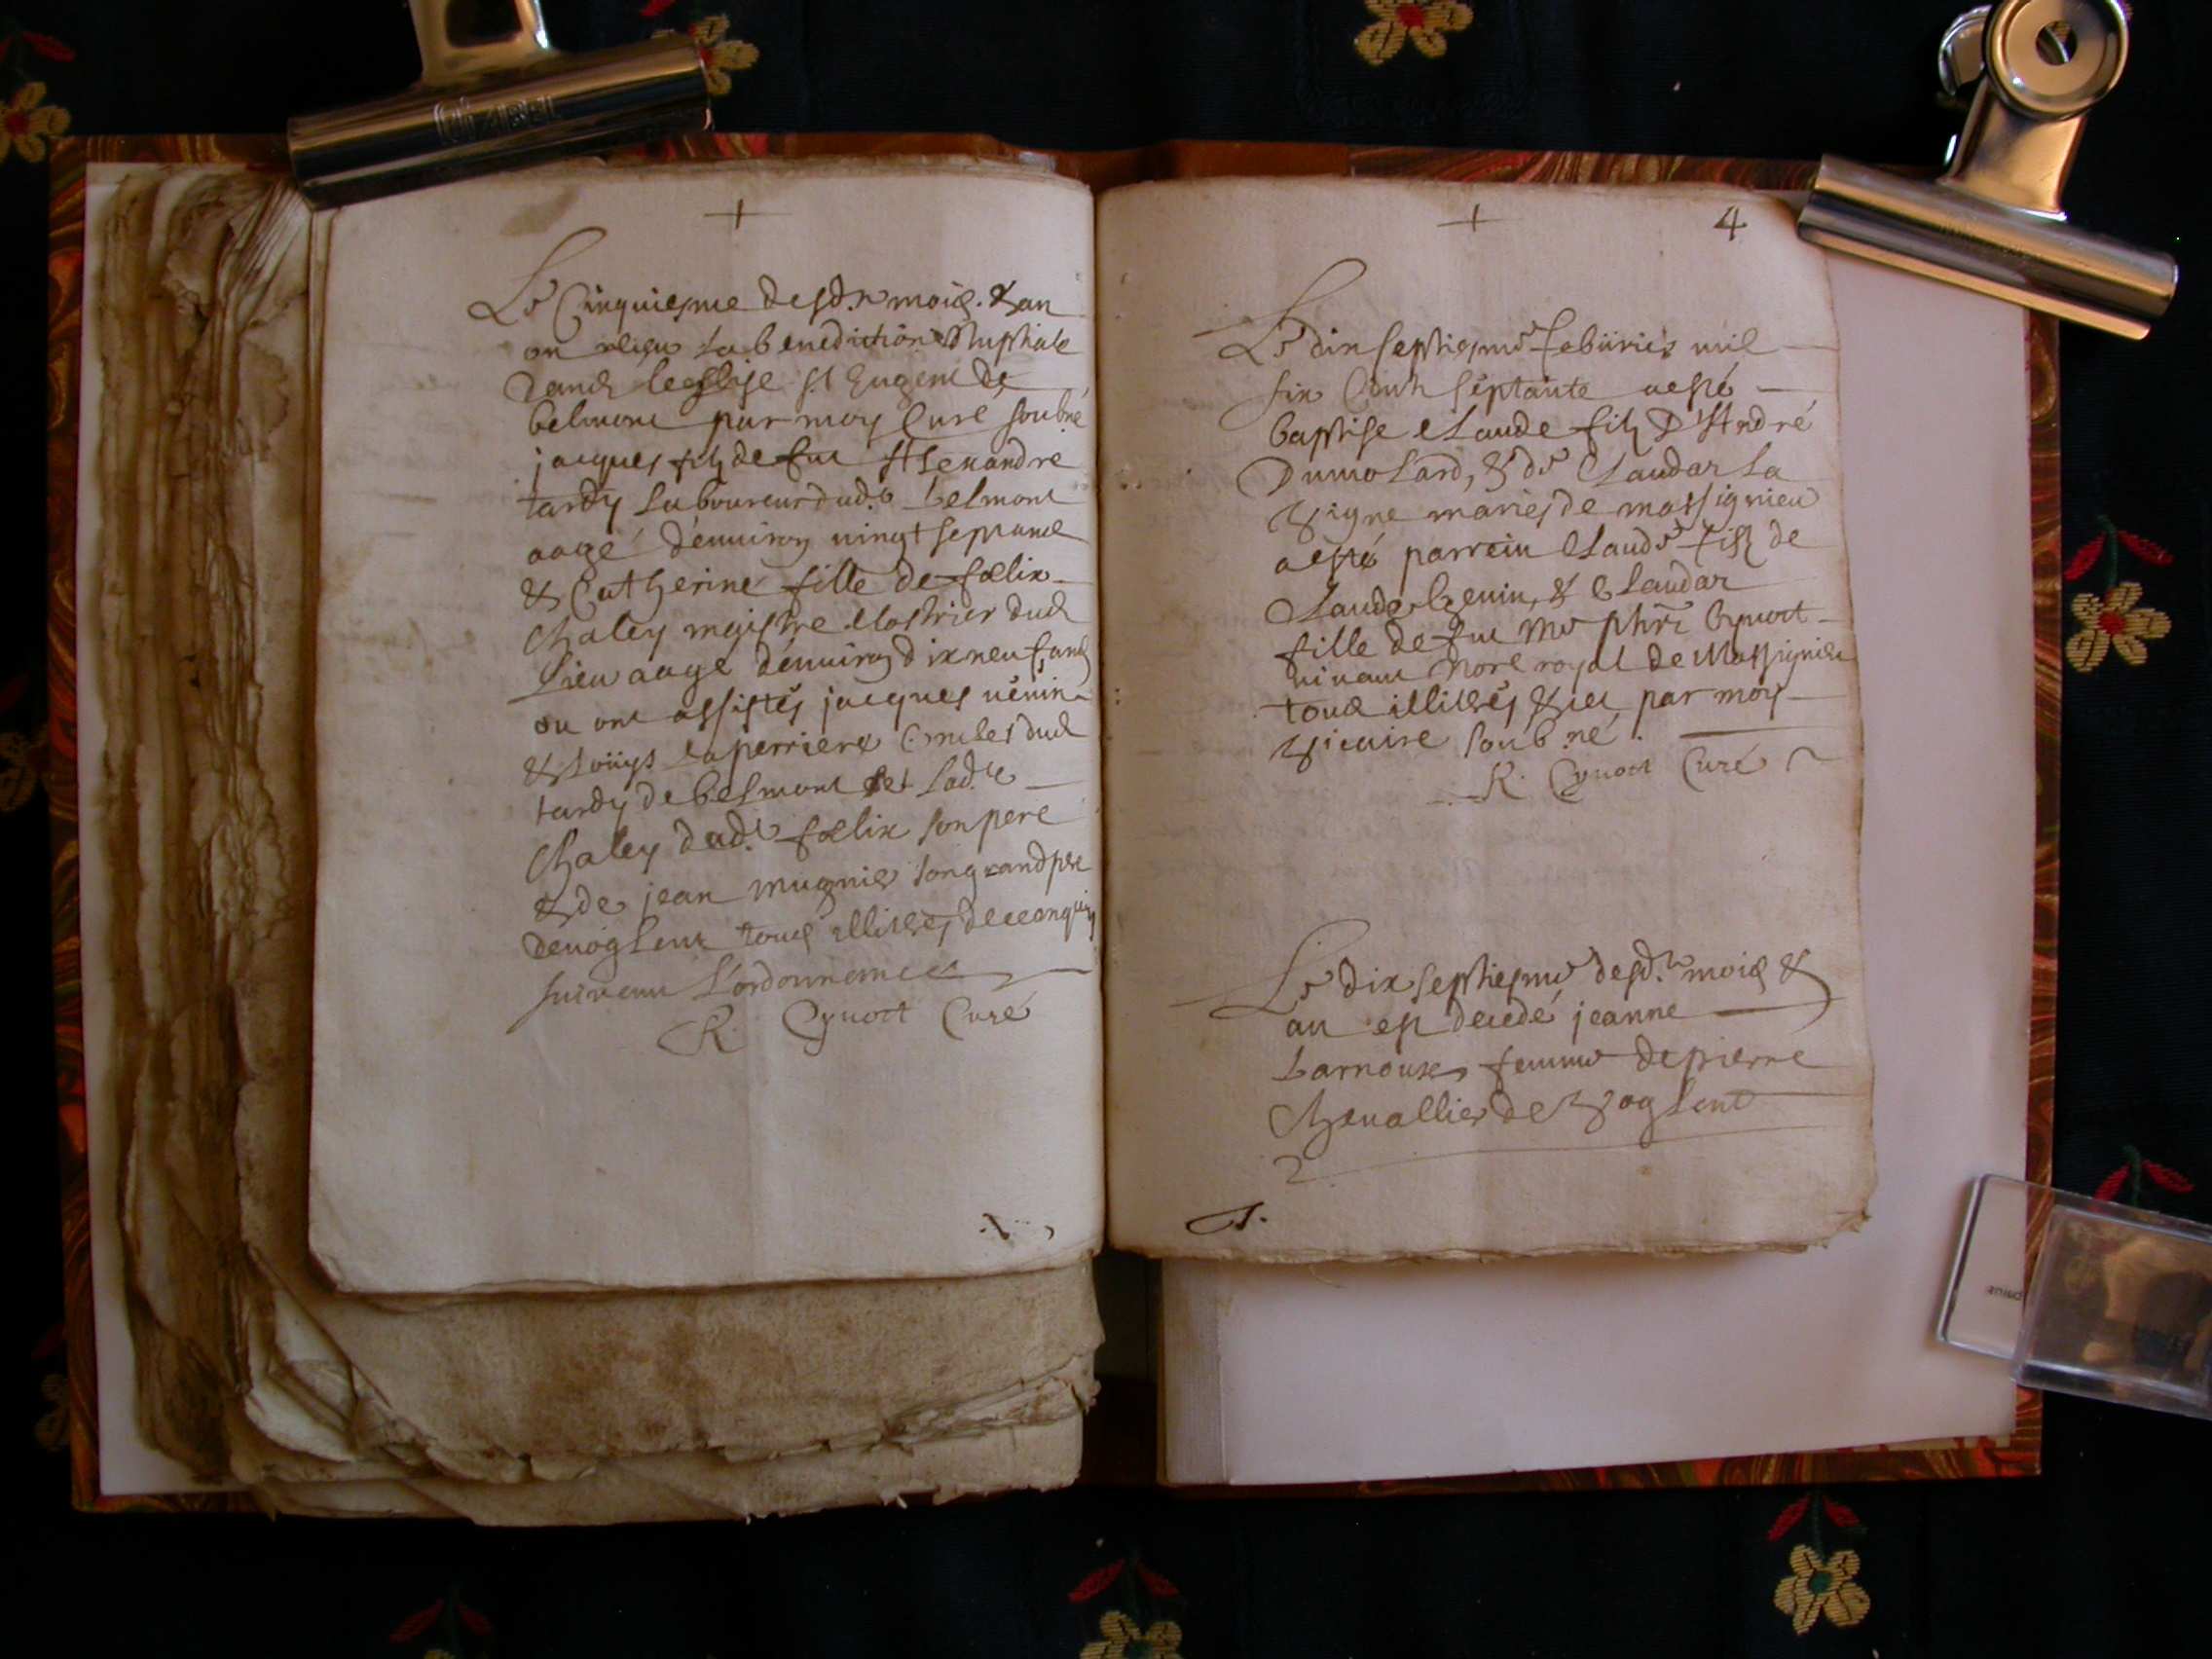 +
Le Cinquiesme desd.ts mois & an
on receu la benediction Nuptiale
dans leeglise St Eugene de
belmont par moy Curé soubné
jacques filz de feu Alexandre
tardy laboureur dud.t belmont
aagé d'enuiron uingt sept ans
& Catherine fille de fœlix
Chaley maistre dud
lieu aage d'enuiron dix neuf ans
ou ont assistés jacques uénin
& Loüys laperriere oncles dud
tardy de belmont et lad.te
Chaley dud.t fœlix son pere
& de jean mugnier son grand pere
deuoglent tous illitrés de ce enquis
suiuant l'ordonnance
R. Cynoct Curé
+
4
Le dix septiesme febürier mil
six Cents séptante aesté
baptise Claude filz D'André
Dumolard, & de Claudaz la
Vigne mariés de massignieu
aesté parrein Claude filz de
Claude Genin, & Claudaz
fille de feu me phri Cynoct
uiuant Nore royal de Massignieu
tous illitrés & ce par moy
Vicaire soub.né.
R. Cynoct Curé
Le dix septiesme desd.ts mois &
an est decedé jeanne
barnoux femme de pierre
Cheuallier de Voglent